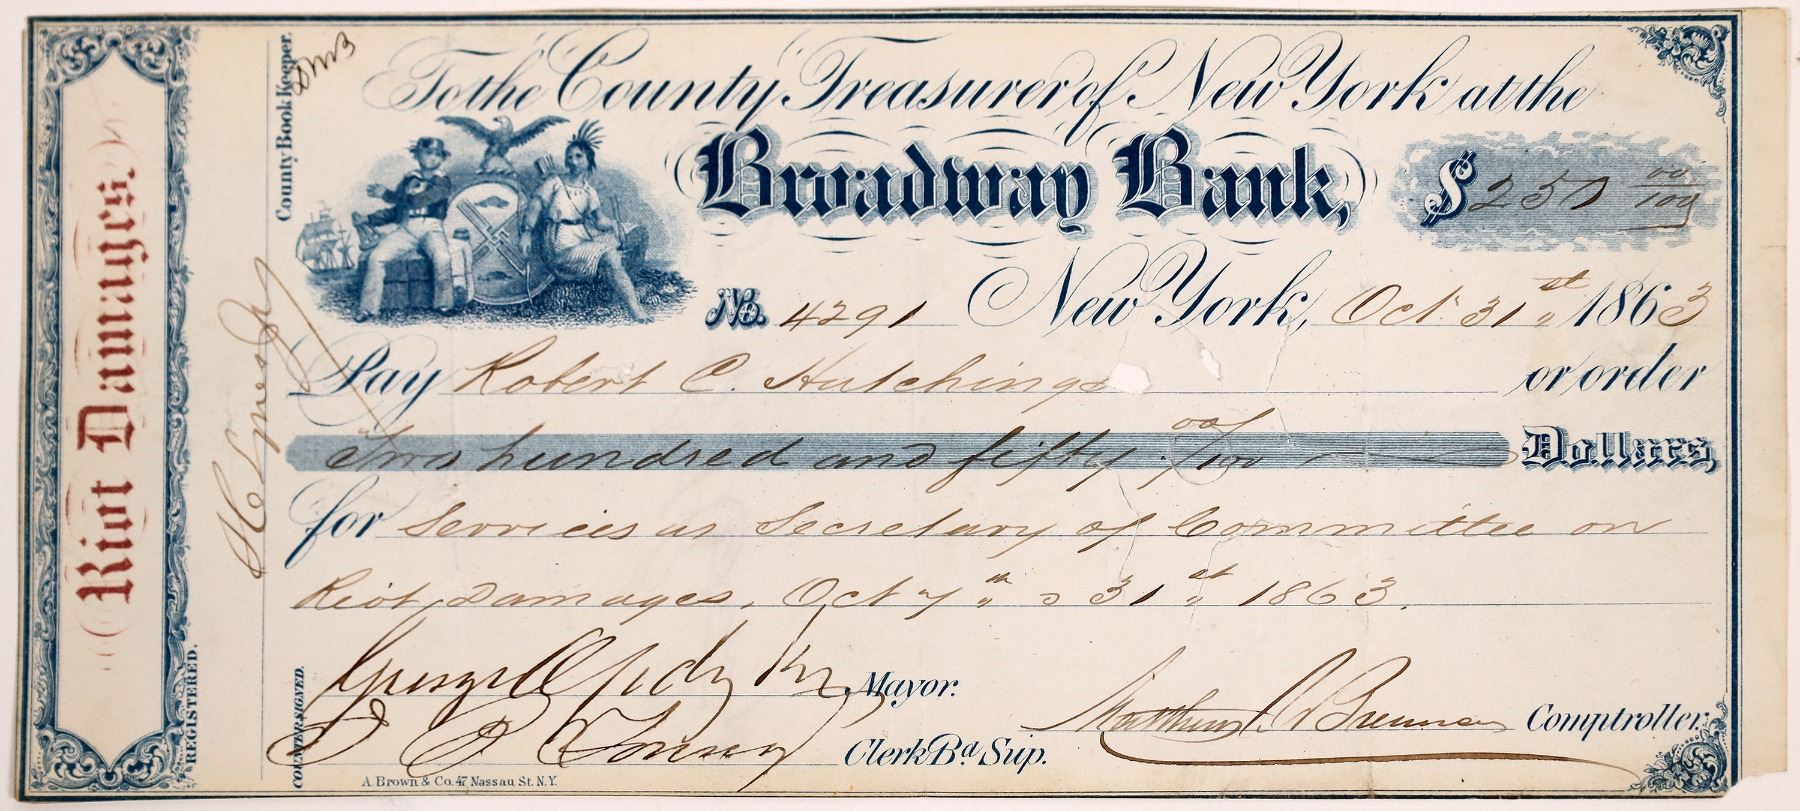 Riot Damages.
REGISTERED.
County Book Keeper.
To the County Treasurer of New York at the
Broadway Bank,
$250 00/100
No. 4291 New York, Oct. 31st 1863
Pay Robert C. Hutchings or order
Two hundred and fifty 00/100 Dollars,
for Services as Secretary of Committee on
Riot Damages. Oct 7th 31st 1863.
COUNTERSIGNED.
George Opdyke Mayor.
Clerk Bd. Sup.
Matthew T. Brennan Comptroller.
A. Brown & Co. 47 Nassau St. N.Y.